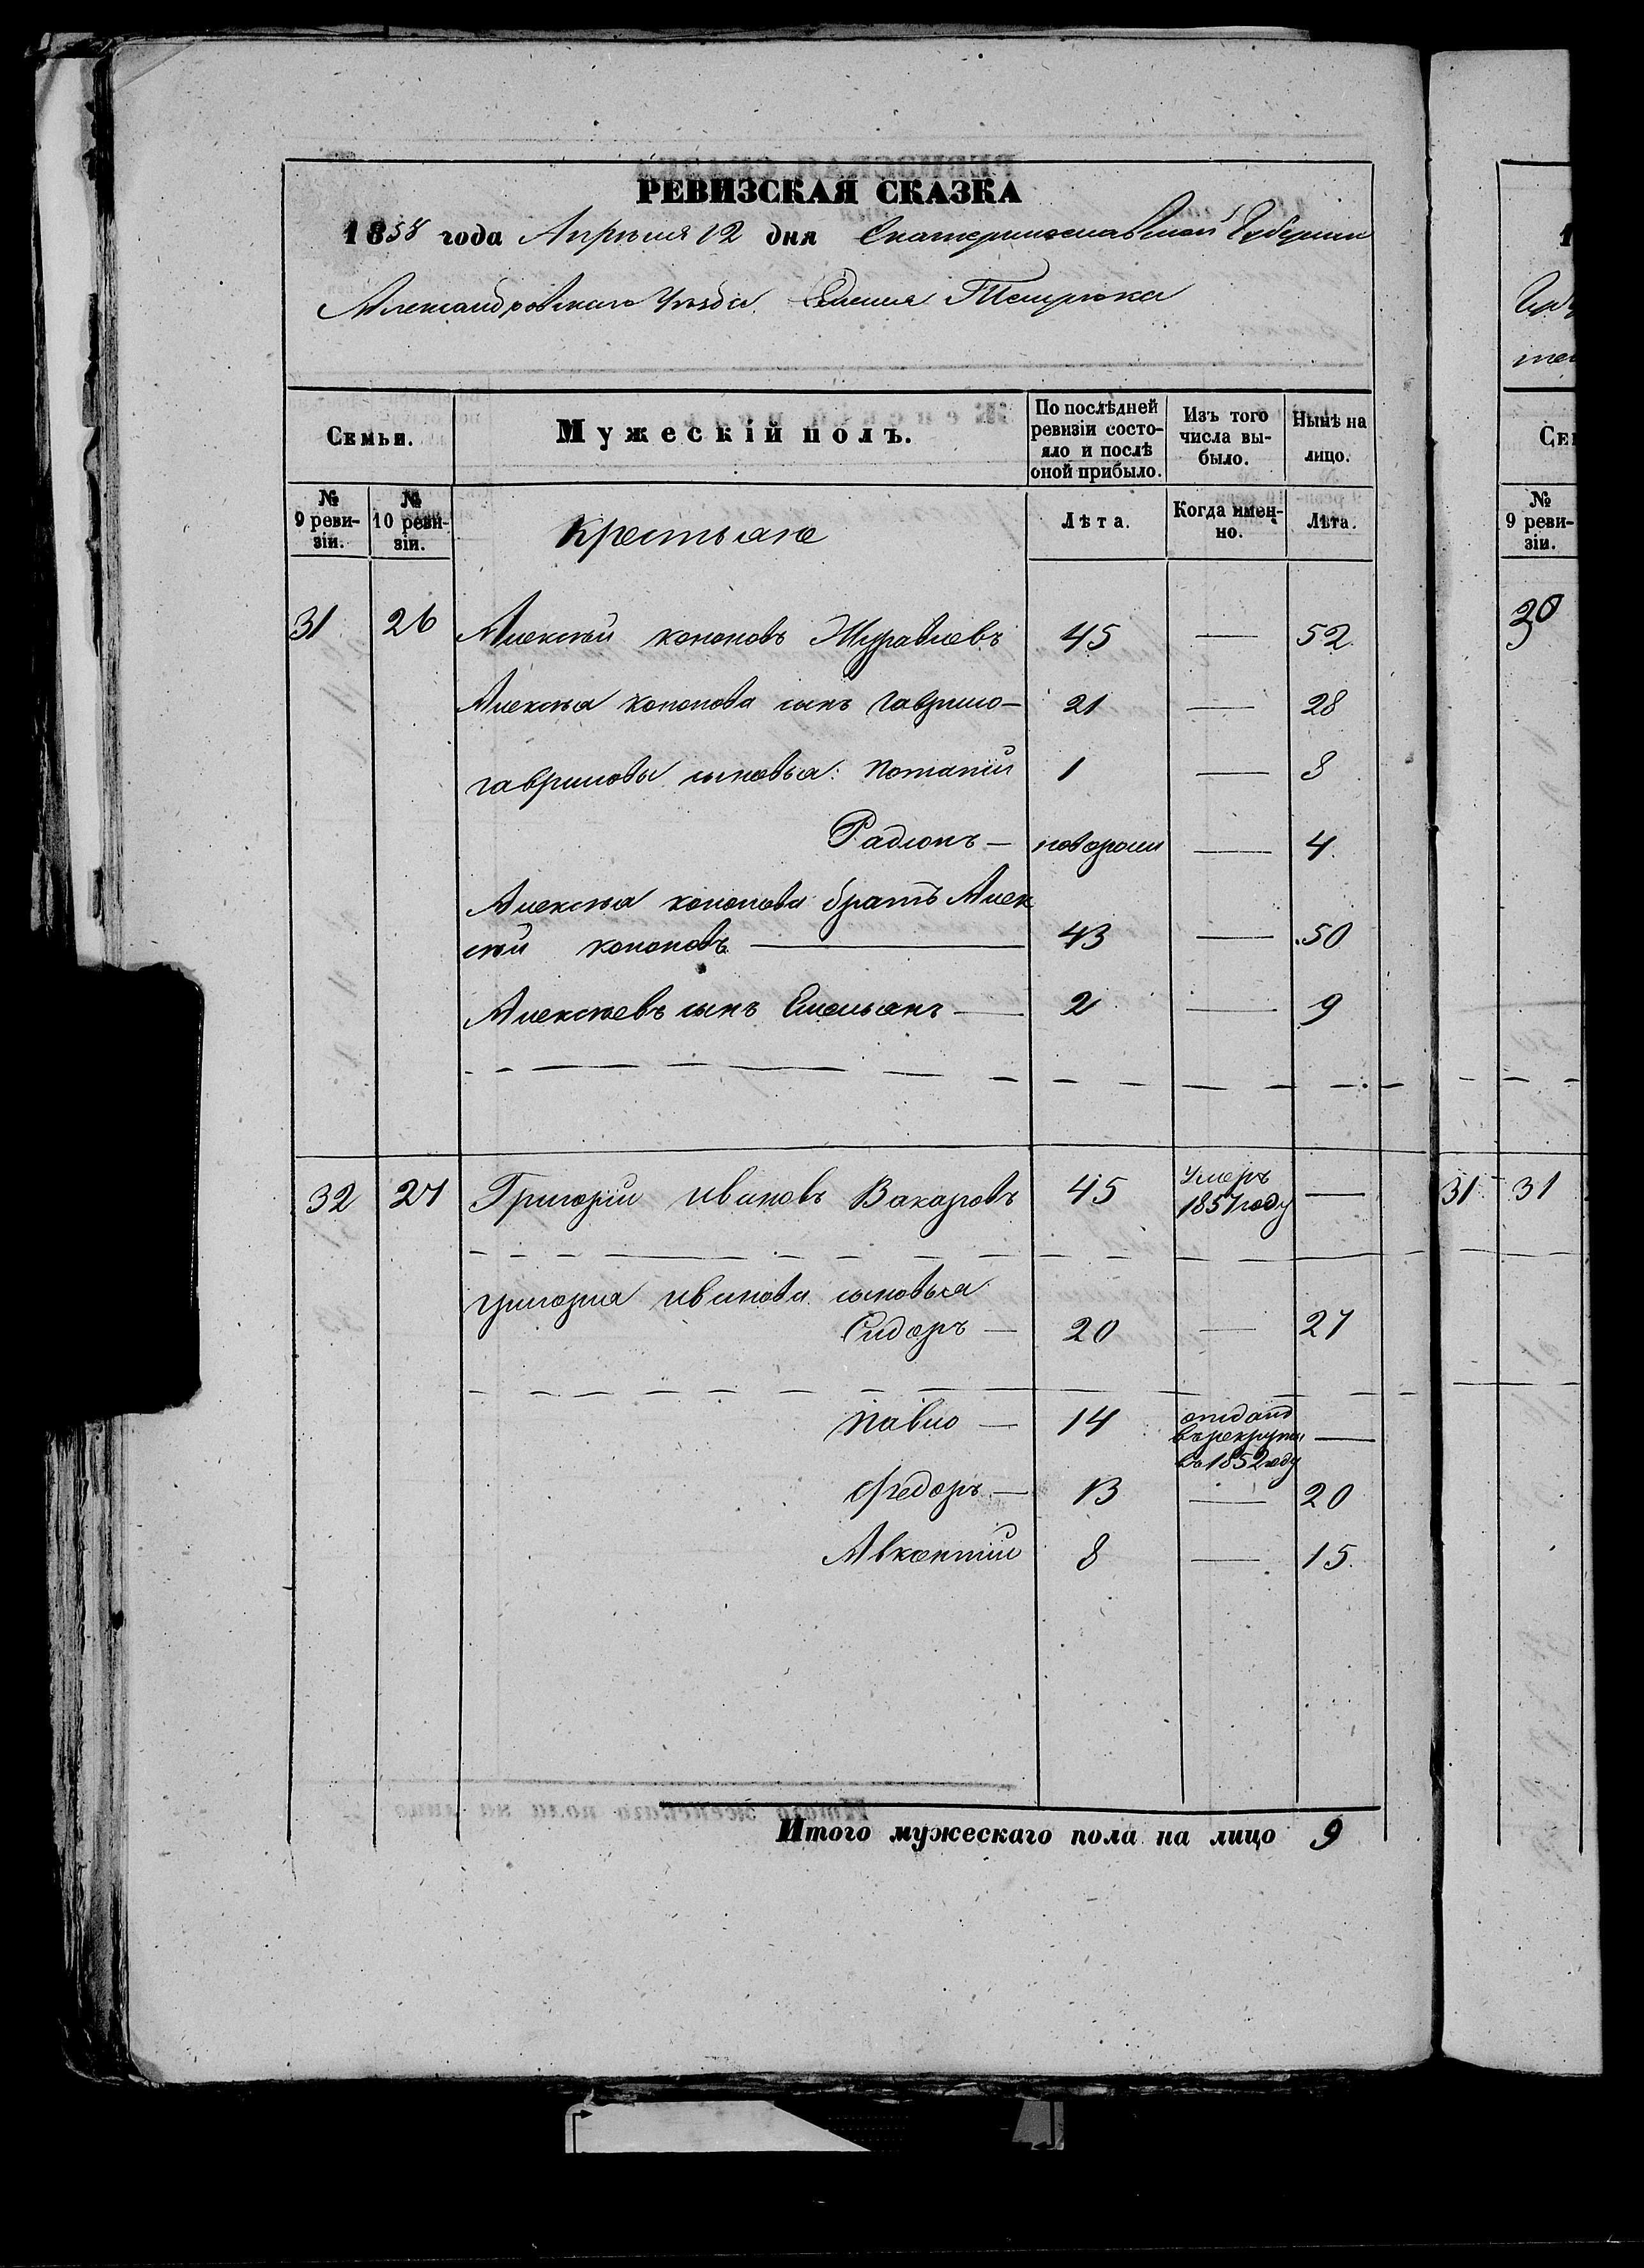 РЕВИЗСКАЯ СКАЗКА
1858 года Апрѣля 12 дня Екатеринославской Губернии
Александровскаго Уѣзда Селения Темрюка
Семьи.
Мужескій полъ.
По послѣдней ревизіи состо-
яло и послѣ
оной прибыло.
Изъ того
числа вы-
было.
Нынѣ на
лицо.
№ 9 реви-
зіи.
№ 10 реви-
зіи.
крестьяне
Лѣта.
Когда имен-
но.
Лѣта.
31 26 Алексѣй кононовъ Журавлевъ 45 — 52
Алексѣя кононова сынъ гаврило — 21 — 28
гавриловы сыновья: потапій 1 — 8
Радионъ — новорожи — 4.
Алексѣя кононова братъ Алек
сѣй кононовъ — 43 — 50
Алексѣевъ сынъ Емельянъ — 2 — 9
32 27 Григорій ивановъ Вакаровъ 45 Умеръ
1857 году —
григорія иванова сыновья
Сидоръ — 20 — 27
павло — 14 отданъ
въ рекруты —
въ 1852 году
федоръ — 13 — 20
Авксентій 8 — 15.
Итого мужескаго пола на лицо 9
1
Се
№
9 реви-
зіи.
30
31 31